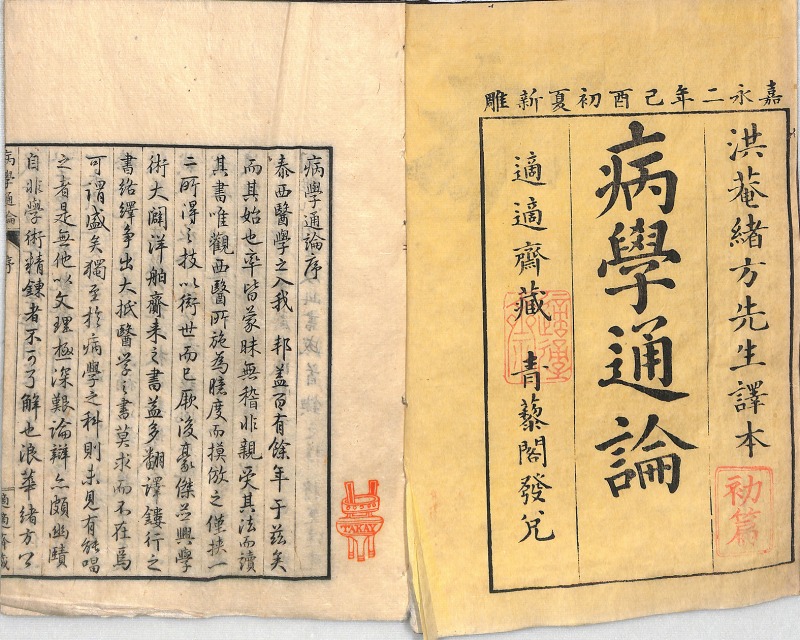 嘉永二年己酉初夏新雕
洪菴緒方先生譯本
初篇
病學通論
適適齋藏 青藜閣發兌
病學通論序
泰西醫學之入我 邦蓋百有餘年于茲矣
而其始也率皆蒙昧無稽非親受其法而讀
其書唯觀西醫所施為臆度而摸倣之僅挟一
二所得之技以衒世而已厥後豪傑並興學
術大闢洋舶齎来之書益多翻譯鏤行之
書絡繹争出大抵醫学之書莫求而不在焉
可謂盛矣獨至於病學之科則未見有能唱
之者是無他以文理極深艱論辯亦頗幽賾
自非學術精錬者不可了解也浪華緒方公
病學通論 序
適適齋藏
TAKAY